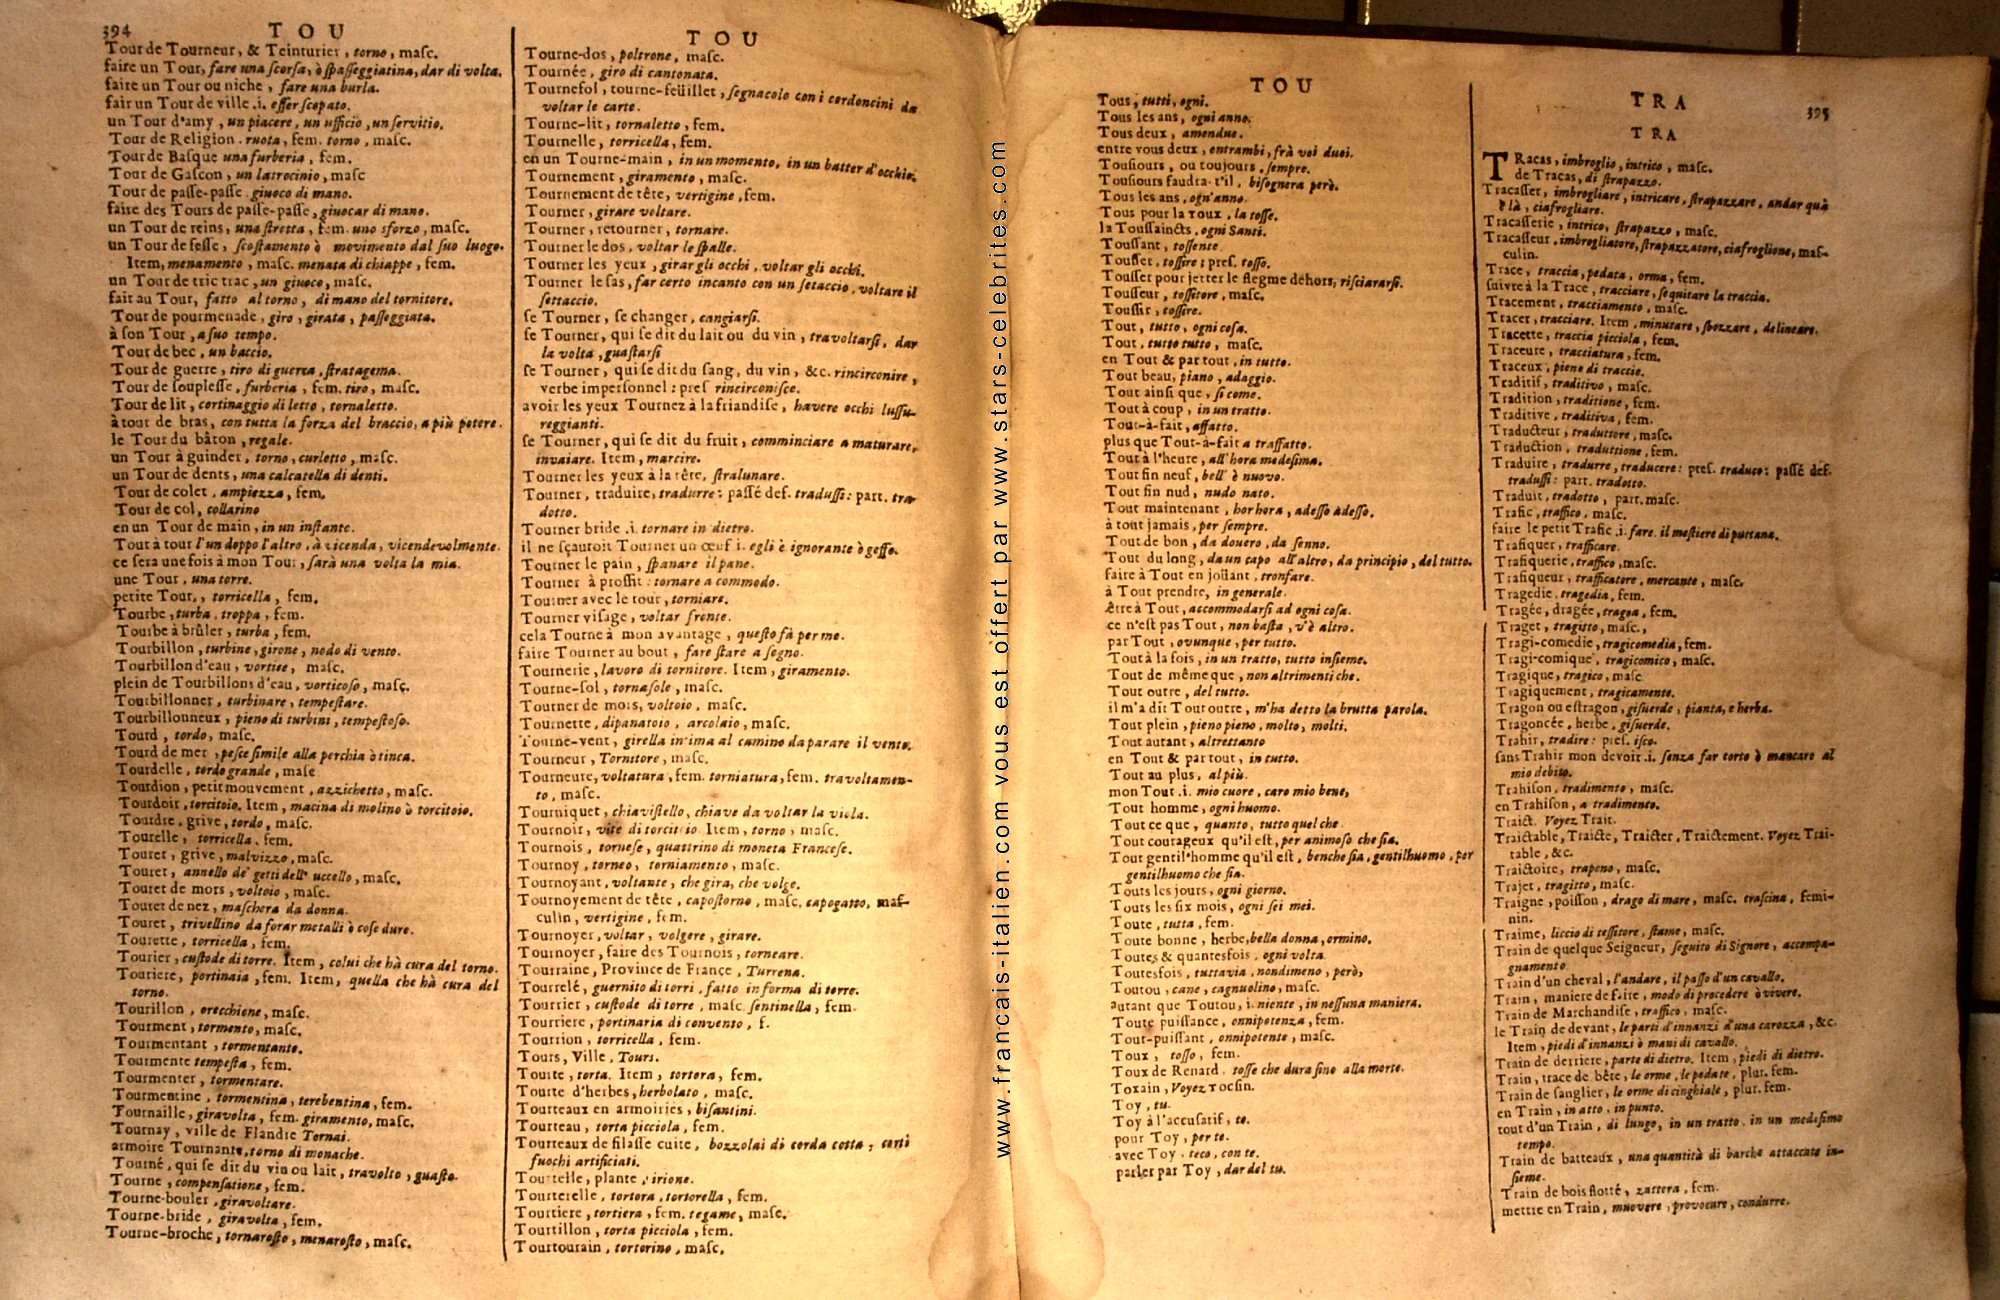 394 TOU
Tour de Tourneur, & Teinturier, torno, masc.
faire un Tour, fare una scorsa, ò spasseggiatina, dar di volta.
faire un Tour ou niche, fare una burla.
fair un Tour de ville .i. esser scopato.
un Tour d'amy, un piacere, un ufficio, un servitio.
Tour de Religion. ruota, fem. torno, masc.
Tour de Basque una furberia, fem.
Tour de Gascon, un latrocinio, masc
Tour de passe-passe. giuoco di mano.
faire des Tours de passe-passe, giuocar di mano.
un Tour de reins, una stretta, fem. uno sforzo, masc.
un Tour de fesse, scostamento ò movimento dal suo luogo.
Item, menamento, masc. menata di chiappe, fem.
un Tour de tric trac, un giuoco, masc.
fait au Tour, fatto al torno, di mano del tornitore.
Tour de pourmenade, giro, girata, passeggiata.
à son Tour, a suo tempo.
Tour de bec, un baccio.
Tour de guerre, tiro di guerra, stratagema.
Tour de souplesse, furberia, fem. tiro, masc.
Tour de lit, cortinaggio di letto, tornaletto.
à tour de bras, con tutta la forza del braccio, a più potere.
le Tour du bâton, regale.
un Tour à guinder, torno, curletto, masc.
un Tour de dents, una calcatella di denti.
Tour de colet, ampiezza, fem.
Tour de col, collarino
en un Tour de main, in un instante.
Tout à tour l'un doppo l'altro, à vicenda, vicendevolmente.
ce sera une fois à mon Tour, sarà una volta la mia.
une Tour, una torre.
petite Tour, torricella, fem.
Tourbe, turba, troppa, fem.
Tourbe à brûler, turba, fem.
Tourbillon, turbine, girone, nodo di vento.
Tourbillon d'eau, vortice, masc.
plein de Tourbillons d'eau, vorticoso, masc.
Tourbillonner, turbinare, tempestare.
Tourbillonneux, pieno di turbini, tempestoso.
Tourd, tordo, masc.
Tourd de mer, pesce simile alla perchia ò tinca.
Tourdelle, tordo grande, masc
Tourdion, petit mouvement, azzichetto, masc.
Tourdoir, torcitoio. Item, macina di molino ò torcitoio.
Tourdre, grive, tordo, masc.
Tourelle, torricella, fem.
Touret, grive, malvizzo, masc.
Touret, annello de' getti dell' uccello, masc.
Touret de mors, voltoio, masc.
Touret de nez, maschera da donna.
Touret, trivellino da forar metalli ò cose dure.
Tourette, torricella, fem.
Tourier, custode di torre. Item, colui che hà cura del torno.
Touriere, portinaia, fem. Item, quella che hà cura del
torno.
Tourillon, orecchione, masc.
Tourment, tormento, masc.
Tourmentant, tormentante.
Tourmente tempesta, fem.
Tourmenter, tormentare.
Tourmentine, tormentina, terebentina, fem.
Tournaille, giravolta, fem. giramento, masc.
Tournay, ville de Flandre Tornai.
armoire Tournante, torno di monache.
Tourné, qui se dit du vin ou lait, travolto, guasto.
Tourne, compensatione, fem.
Tourne-bouler, giravoltare.
Tourne-bride, giravolta, fem.
Tourne-broche, tornarosto, menarosto, masc.
TOU
Tourne-dos, poltrone, masc.
Tournée, giro di cantonata.
Tournefol, tourne-feüillet, segnacolo con i cordoncini da
voltar le carte.
Tourne-lit, tornaletto, fem.
Tournelle, torricella, fem.
en un Tourne-main, in un momento, in un batter d'occhio.
Tournement, giramento, masc.
Tournement de tête, vertigine, fem.
Tourner, girare voltare.
Tourner, retourner, tornare.
Tourner le dos, voltar le spalle.
Tourner les yeux, girar gli occhi, voltar gli occhi.
Tourner le sas, far certo incanto con un setaccio, voltare il
settaccio.
se Tourner, se changer, cangiarsi.
se Tourner, qui se dit du lait ou du vin, travoltarsi, dar
la volta, guastarsi
se Tourner, qui se dit du sang, du vin, &c. rincirconire,
verbe impersonnel: pres rinciconisce.
avoir les yeux Tournez à la friandise, havere occhi lussu-
reggianti.
se Tourner, qui se dit du fruit, comminciare a maturare,
invaiare. Item, marcire.
Tourner les yeux à la tête, stralunare.
Tourner, traduire, tradurre: passé def. tradussi: part. tra-
dotto.
Tourner bride .i. tornare in dietro.
il ne sçauroit Tourner un œuf i. egli è ignorante ò goffo.
Tourner le pain, spanare il pane.
Tourner à proffit: tornare a commodo.
Tourner avec le tour, torniare.
Tourner visage, voltar fronte.
cela Tourne à mon avantage, questo fà per me.
faire Tourner au bout, fare stare a segno.
Tournerie, lavoro di tornitore. Item, giramento.
Tourne-sol, tornasole, masc.
Tourner de mors, voltoio, masc.
Tournette, dipanatoio, arcolaio, masc.
Tourne-vent, girella in cima al camino da parare il vento.
Tourneur, Tornitore, masc.
Tourneure, voltatura, fem. torniatura, fem. travoltamen-
to, masc.
Tourniquet, chiavistello, chiave da voltar la viola.
Tournoir, vite di torcitoio Item, torno, masc.
Tournois, tornese, quattrino di moneta Francese.
Tournoy, torneo, torniamento, masc.
Tournoyant, voltante, che gira, che volge.
Tournoyement de tête, capostorno, masc. capogatto, mas-
culin, vertigine, fem.
Tournoyer, voltar, volgere, girare.
Tournoyer, faire des Tournois, torneare.
Tourraine, Province de France, Turrena.
Tourrelé, guernito di torri, fatto in forma di torre.
Tourrier, custode di torre, masc. sentinella, fem.
Tourriere, portinaria di convento, f.
Tourrion, torricella, fem.
Tours, Ville, Tours.
Tourte, torta. Item, tortora, fem.
Tourte d'herbes, herbolato, masc.
Tourteaux en armoiries, bisantini.
Tourteau, torta picciola, fem.
Tourteaux de filasse cuite, bozzolai di corda cotta, certi
fuochi artificiati.
Tourtelle, plante, irione.
Tourterelle, tortora, tortorella, fem.
Tourtiere, tortiera, fem. tegame, masc.
Tourtillon, torta picciola, fem.
Tourtourain, tortorino, masc.
www.francais-italien.com vous est offert par www.stars-celebrites.com
TOU
Tous, tutti, ogni.
Tous les ans, ogni anno.
Tous deux, amendue.
entre vous deux, entrambi, frà voi duoi.
Tousiours, ou toujours, sempre.
Tousiours faudra-t'il, bisognera però.
Tous les ans, ogn'anno.
Tous pour la toux, la tosse.
la Toussaincts, ogni Santi.
Toussant, tossente.
Tousser, tossire; pres. tosso.
Tousser pour jetter le flegme déhors, risciararsi.
Tousseur, tossitore, masc.
Toussir, tossire.
Tout, tutto, ogni cosa.
Tout, tutto tutto, masc.
en Tout & par tout, in tutto.
Tout beau, piano, adaggio.
Tout ainsi que, si come.
Tout à coup, in un tratto.
Tout-à-fait, affatto.
plus que Tout-à-fait a traffatto.
Tout à l'heure, all'hora medesima.
Tout fin neuf, bell' è nuovo.
Tout fin nud, nudo nato.
Tout maintenant, hor hora, adesso adesso.
à tout jamais, per sempre.
Tout de bon, da dovero, da senno.
Tout du long, da un capo all'altro, da principio, del tutto.
faire à Tout en joüant, tronfare.
à Tout prendre, in generale.
être à Tout, accommodarsi ad ogni cosa.
ce n'est pas Tout, non basta, v'è altro.
par Tout, ovunque, per tutto.
Tout à la fois, in un tratto, tutto insieme.
Tout de même que, non altrimenti che.
Tout outre, del tutto.
il m'a dit Tout outre, m'ha detto la brutta parola.
Tout plein, pieno pieno, molto, molti.
Tout autant, altrettanto
en Tout & par tout, in tutto.
Tout au plus, al più.
mon Tout .i. mio cuore, caro mio bene,
Tout homme, ogni huomo.
Tout ce que, quanto, tutto quel che.
Tout courageux qu'il est, per animoso che sia.
Tout gentil'homme qu'il est, benche sia, gentilhuomo, per
gentilhuomo che sia.
Touts les jours, ogni giorno.
Touts les six mois, ogni sei mei.
Toute, tutta, fem.
Toute bonne, herbe, bella donna, ormino.
Toutes & quantesfois, ogni volta.
Toutesfois, tuttavia, nondimeno, però,
Toutou, cane, cagnuolino, masc.
autant que Toutou, i. niente, in nessuna maniera.
Toute puissance, onnipotenza, fem.
Tout-puissant, onnipotente, masc.
Toux, tosso, fem.
Toux de Renard, tosse che dura sino alla morte.
Toxain, Voyez Tocsin.
Toy, tu.
Toy à l'accusatif, te.
pour Toy, per te.
avec Toy, teco, con te.
parler par Toy, dar del tu.
TRA 395
TRA
TRacas, imbroglio, intrico, masc.
de Tracas, di strapazzo.
Tracasser, imbrogliare, intricare, strapazzare, andar quà
è là, ciafrogliare.
Tracasserie, intrico, strapazzo, masc.
Tracasseur, imbrogliatore, strapazzatore, ciafroglione, mas-
culin.
Trace, traccia, pedata, orma, fem.
suivre à la Trace, tracciare, sequitare la traccia.
Tracement, tracciamento, masc.
Tracer, tracciare. Item, minutare, sbozzare, delineare.
Tracette, traccia picciola, fem.
Traceure, tracciatura, fem.
Traceux, pieno di traccie.
Traditif, traditivo, masc.
Tradition, traditione, fem.
Traditive, traditiva, fem.
Traducteur, traduttore, masc.
Traduction, traduttione, fem.
Traduire, tradurre, traducere: pres. traduco: passé def.
tradussi: part. tradotto.
Traduit, tradotto, part. masc.
Trafic, traffico, masc.
faire le petit Trafic .i. fare il mestiere di puttana.
Trafiquer, trafficare.
Trafiquerie, traffico, masc.
Trafiqueur, trafficatore, mercante, masc.
Tragedie, tragedia, fem.
Tragée, dragée, tragea, fem.
Traget, tragitto, masc.
Tragi-comedie, tragicomedia, fem.
Tragi-comique, tragicomico, masc.
Tragique, tragico, masc
Tragiquement, tragicamente.
Tragon ou estragon, gisuerde, pianta, e herba.
Tragoncée, herbe, gisuerde.
Trahir, tradire: pres. isco.
sans Trahir mon devoir .i. senza far torto ò mancare al
mio debito.
Trahison, tradimento, masc.
en Trahison, a tradimento.
Traict. Voyez Trait.
Traictable, Traicte, Traicter, Traictement. Voyez Trai-
table, &c.
Traictoire, trapono, masc.
Trajet, tragitto, masc.
Traigne, poisson, drago di mare, masc. trascina, femi-
nin.
Traime, liccio di tessitore, stame, masc.
Train de quelque Seigneur, seguito di Signore, accompa-
gnamento
Train d'un cheval, l'andare, il passo d'un cavallo.
Train, maniere de faire, modo di procedere ò vivere.
Train de Marchandise, traffico, masc.
le Train de devant, le parti d'innanzi d'una carozza, &c.
Item, piedi d'innanzi ò mani di cavallo.
Train de derriere, parte di dietro. Item, piedi di dietro.
Train, trace de bête, le orme, le pedate, plur. fem.
Train de sanglier, le orme di cinghiale, plur. fem.
en Train, in atto, in punto.
tout d'un Train, di lungo, in un tratto, in un medesimo
tempo.
Train de batteaux, una quantità di barche attaccate in-
sieme.
Train de bois flotté, zattera, fem.
mettre en Train, muovere, provocare, condurre.